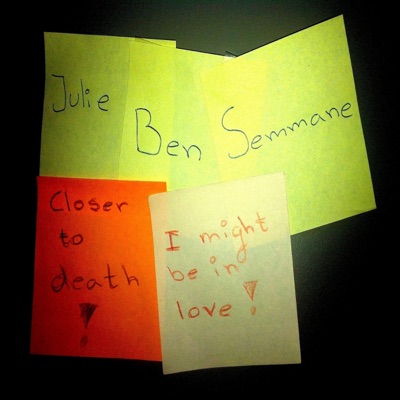 Julie
Ben
Semmane
Closer
to
death
!
I might
be in
love!